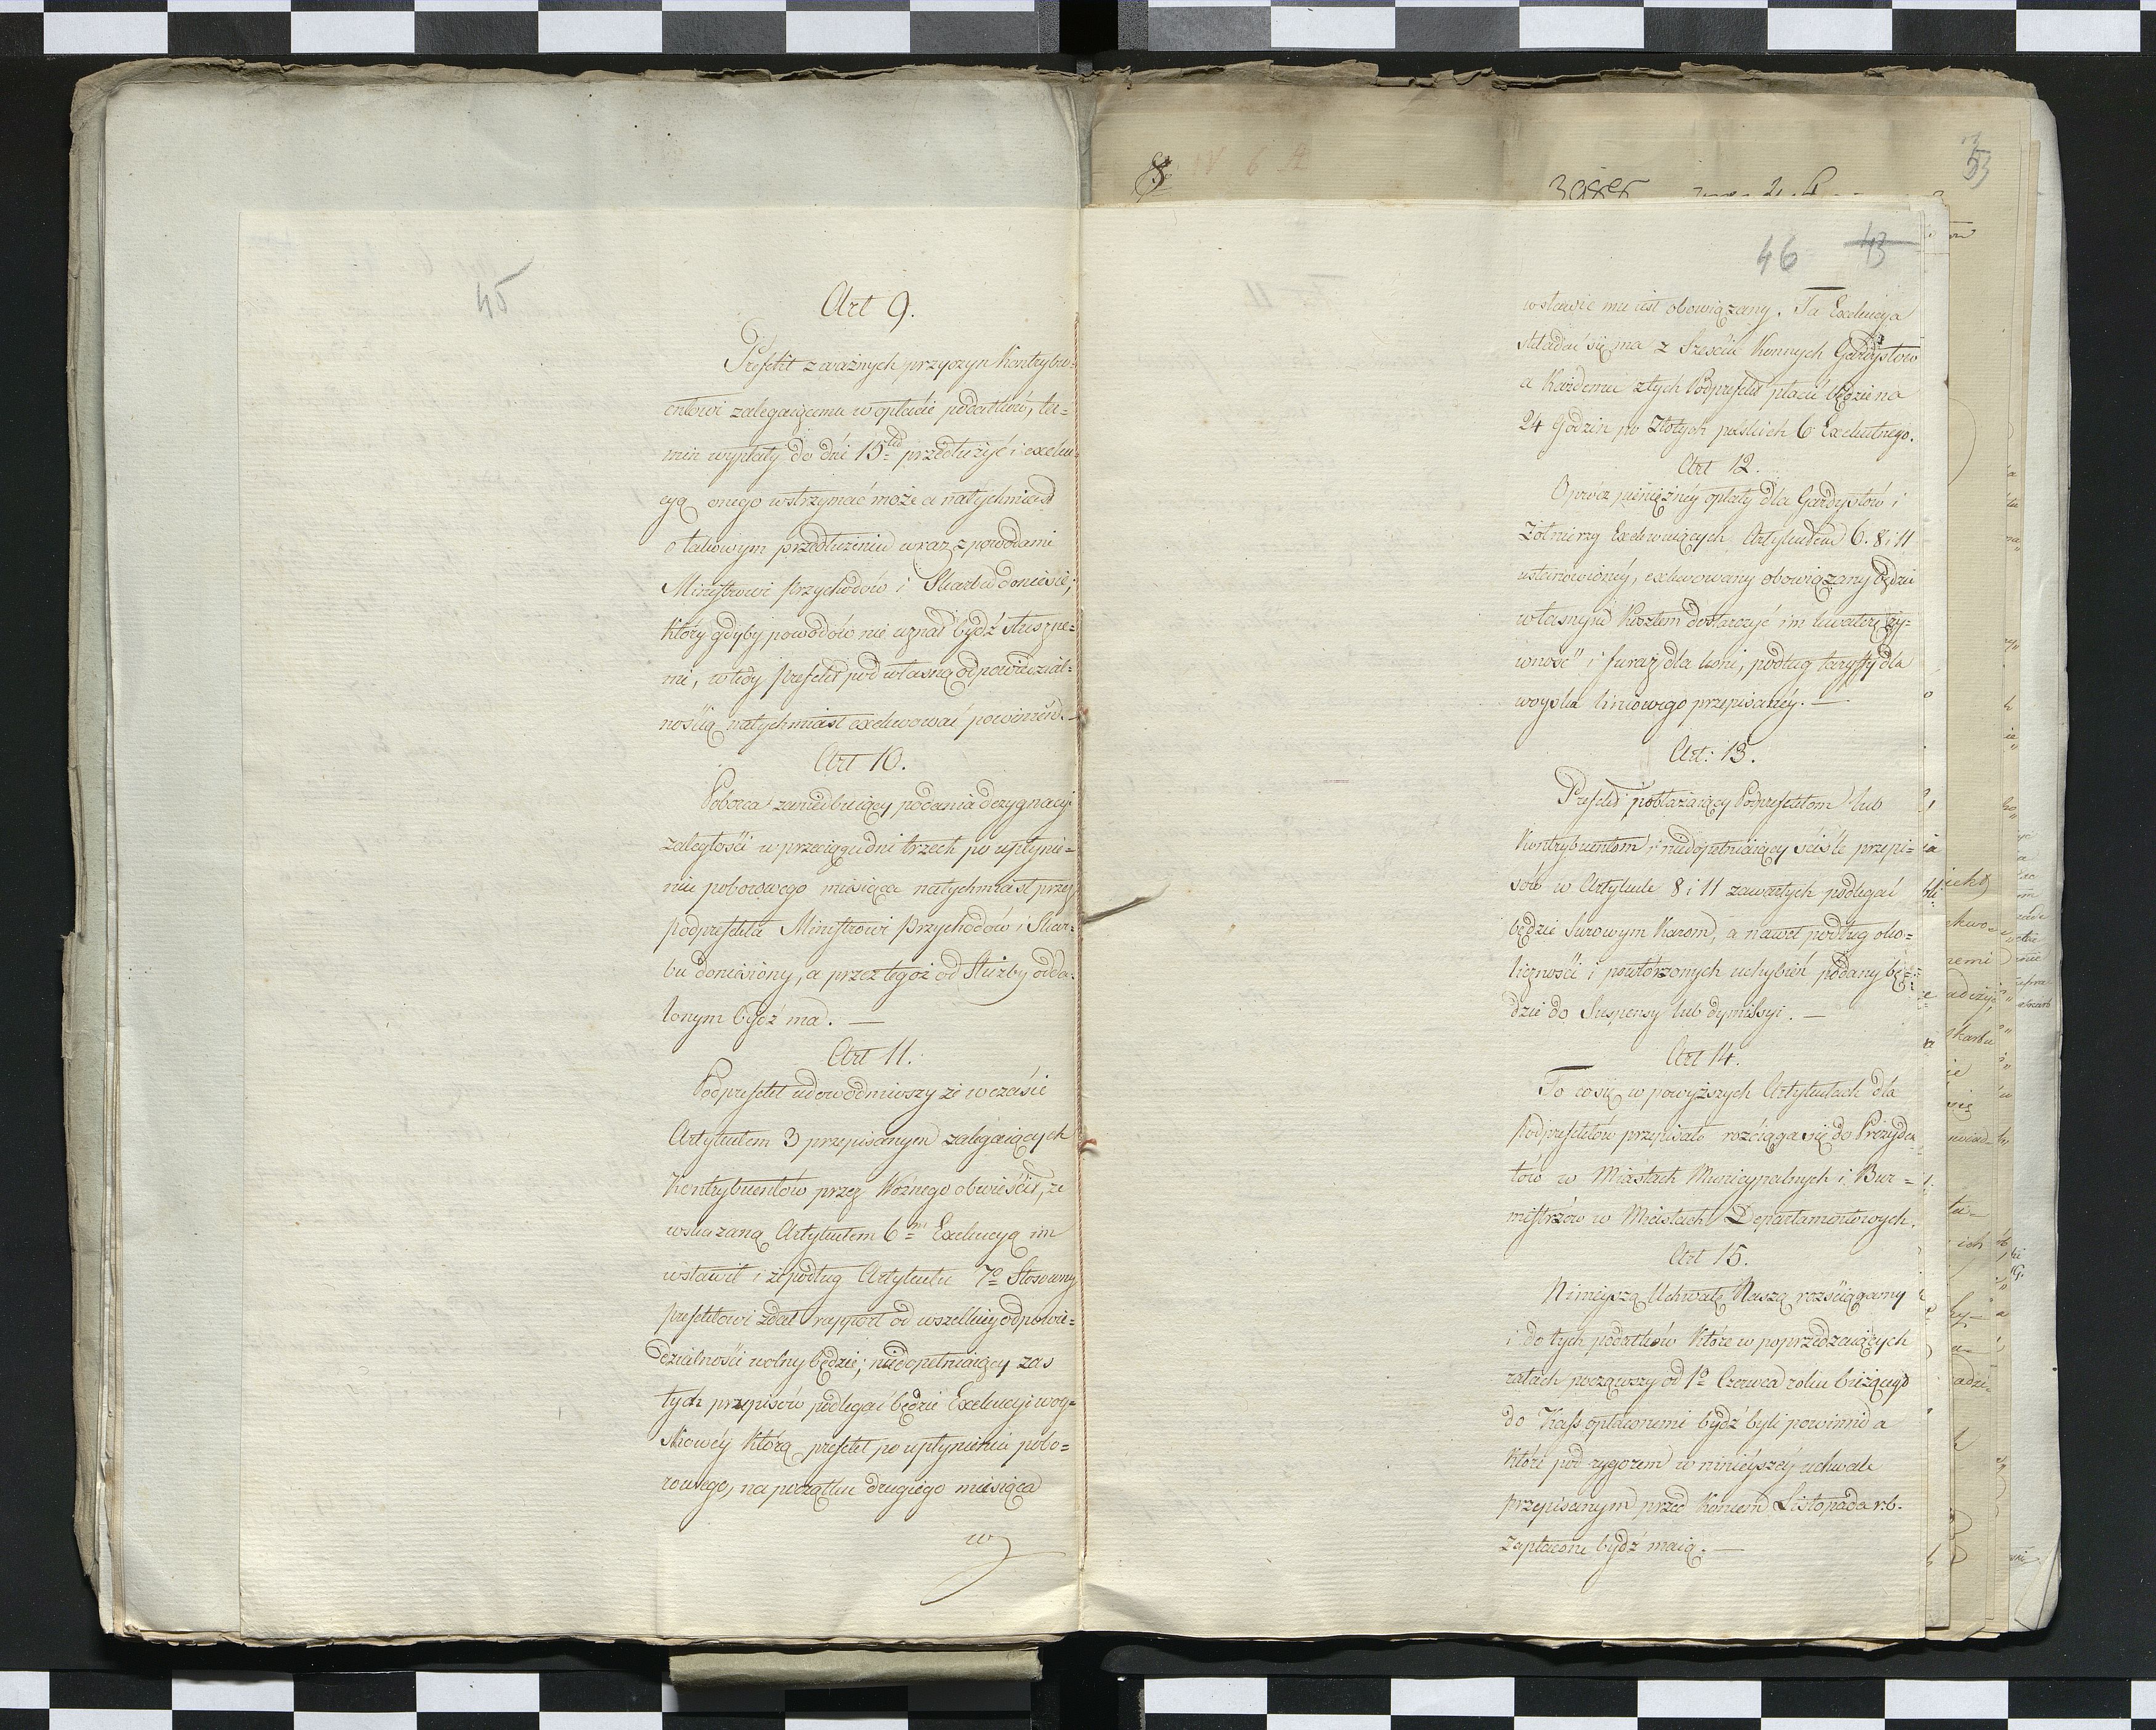 45
Art 9.
Prefekt z ważnych przyczyn Kontrybu=
entowi zalegaiącemu w opłacie podatków, ter=
min wypłaty do dni 15stu przedłużyć i exeku
cyą onego wstrzymać może a natychmiast
o takowym przedłużeniu wraz z powodami
Ministrowi Przychodów i Skarbu doniesie,
który gdyby powodów nie uznał bydź słuszne=
mi, wtedy Prefekt pod własną odpowiedzial=
nością natychmiast exekwować powinien. —
Art 10.
Poborca zaniedbuiący podania dezygnacyi
zaległości w przeciągu dni trzech po upłynie=
niu poborowego miesiąca natychmiast przez
podprefekta Ministrowi Przychodów i Skar=
bu doniesiony, a przez tegoż od Służby odda=
lonym bydź ma. —
Art 11.
Podprefekt udowodniwszy że w czasie
Artykułem 3 przepisanym zalegaiących
Kontrybuentów przez Woźnego obwieścił, że
wskazaną Artykułem 6m Exekucyą im
wstawił i że podług Artykułu 7o Stosowny
prefektowi zdał rapport od wszelkiey odpowie=
dzialności wolny będzie; niedopełniaiący zas
tych przepisów podlegać będzie Exekucyi woy=
skowéy którą prefekt po upłynieniu pobo=
rowego, na początku drugiego miesiąca
w
8
53
46 43
wstawić mu iest obowiązany. Ta Exekucya
składać się ma z Sześciu Konnych Gardystów
a Każdemu z tych Podprefekt płacić będzie na
24 Godzin po Złotych polskich 6 Exekutnego.
Art 12.
Oprócz pieniężnéy opłaty dla Gardystów i
Zołnierzy Exekwuiących Artykułem 6. 8 i 11
ustanowionéy, exekwowany obowiązany będzie
własnym Kosztem dostarczyć im kwaterę ży=
wność i furaż dla koni, podług taryffy dla
woyska liniowego przepisanéy. —
Art: 13.
Prefekt pobłażaiący Podprefektom lub
Kontrybuentom i niedopełniaiący ściśle przepi=
sów w Artykule 8 i 11 zawartych podlegać
będzie Surowym Karom, a nawet podług oko=
liczności i powtórzonych uchybień podany bę=
dzie do Suspensy lub dymissyi. —
Art 14.
To co się w powyższych Artykułach dla
Podprefektów przepisało rozciąga się do Prezyden
tów w Miastach Municypalnych i Bur=
mistrzów w Miastach Departamentowych.
Art 15.
Ninieyszą Uchwałę Naszą rozściągamy
i do tych podatków które w poprzedzaiących
ratach począwszy od 1o Czerwca roku bieżącego
do Kass opłaconemi bydź byli powinni a
które pod rygorem w ninieyszéy uchwale
przepisanym przed Końcem Listopada r.b.
zapłacone bydź maią. —